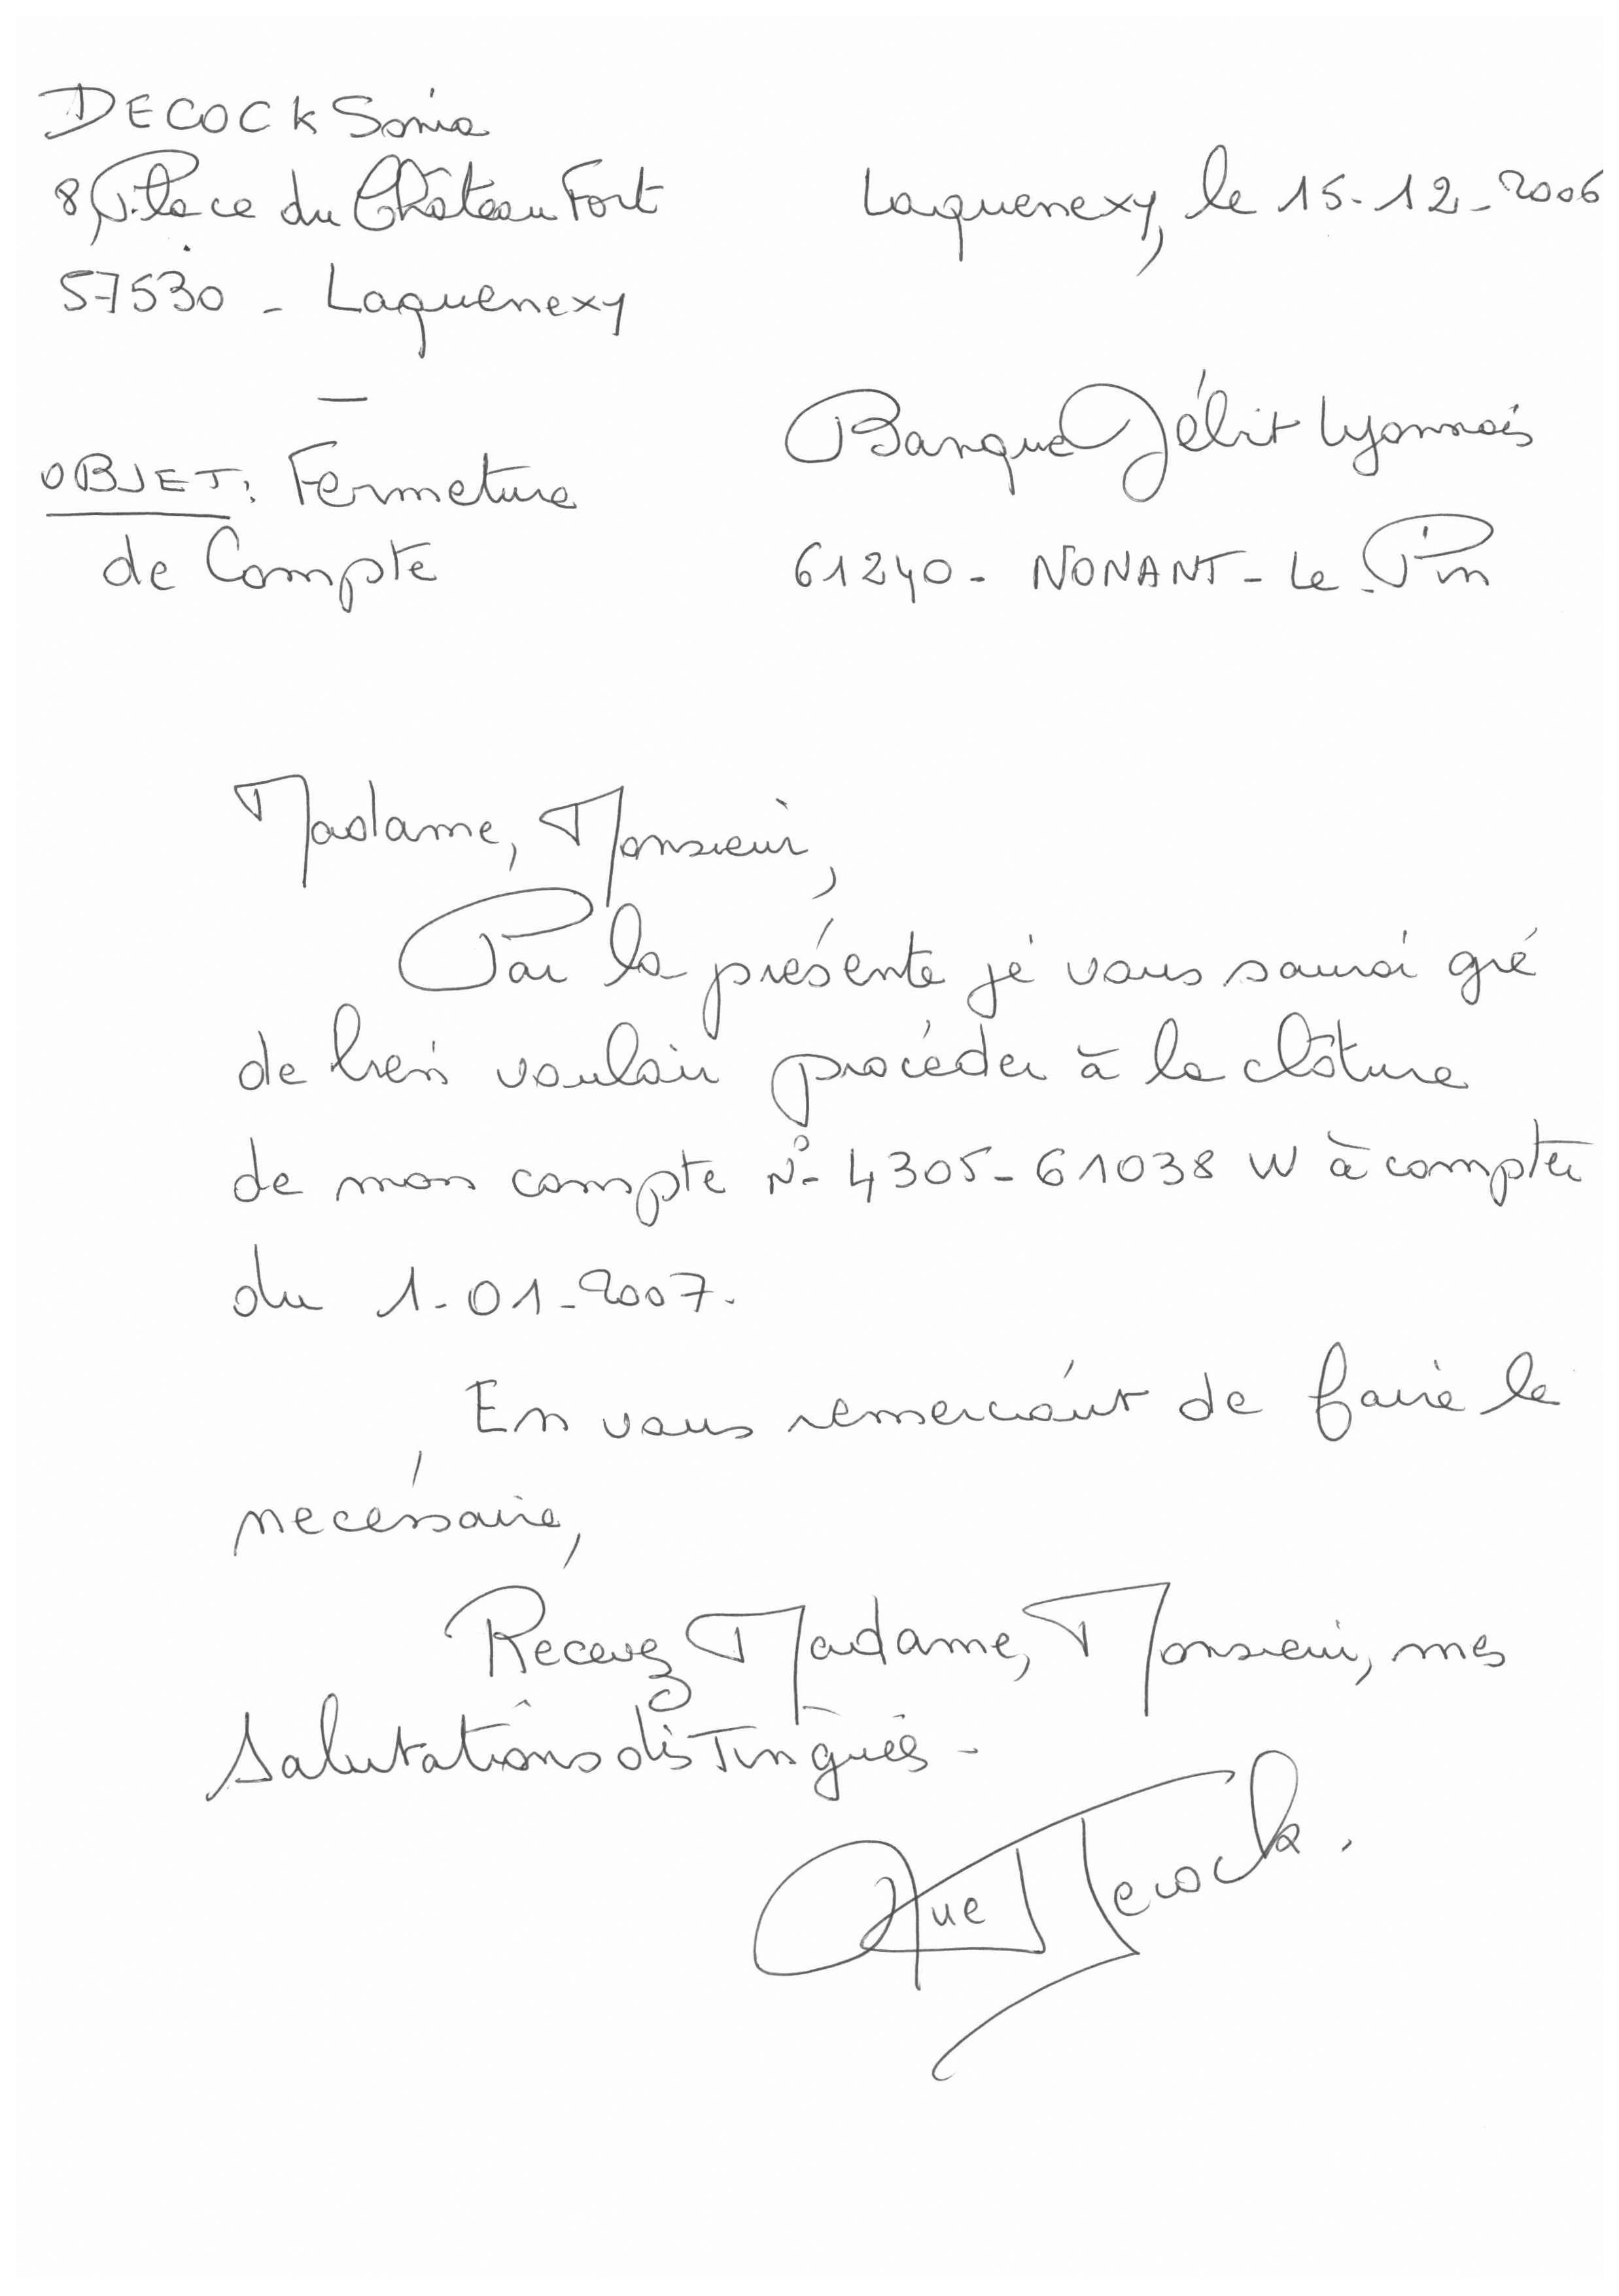 DECOCK Sonia
8, Place du Château Fort
57530 - Laquenexy
Laquenexy, le 15-12-2006
Banque Débit Lyonnais
61240 - NONANT - Le Pin
OBJET: Fermeture
de Compte
Madame, Monsieur,
Par la présente je vous saurai gré
de bien vouloir procéder à la clôture
de mon compte N° 4305-61038 W à compter
du 1-01-2007.
En vous remerciant de faire le
necéssaire,
Recevez Madame, Monsieur, mes
Salutations distingués -
Decock.